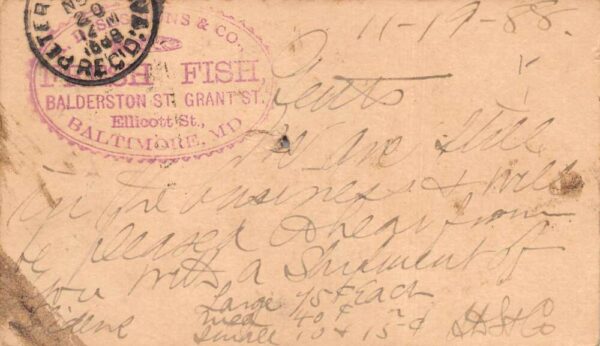 PETER
NO
20
12 M
1888
REC'D.
NS & CO.,
FRESH FISH,
BALDERSTON ST. GRANT ST.
Ellicott St.,
BALTIMORE, MD
11-19-88.
Gents
We are still
in the business & will
be pleased to hear from
you with a Shipment of
Large 75¢ Each
med 40 ¢
Small 10 & 15 ¢ H S & Co